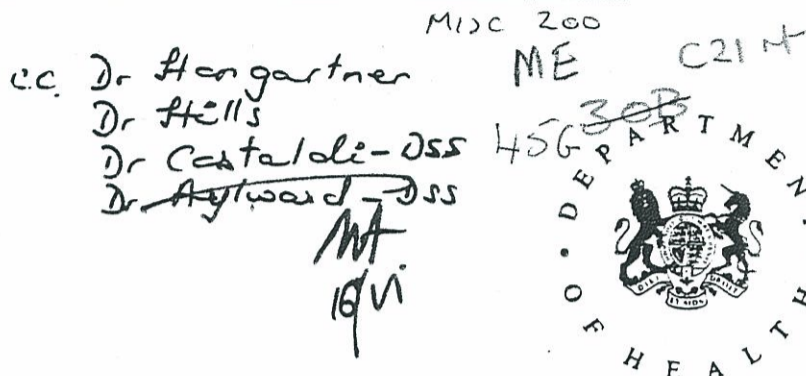 MISC 200
ME
C21
c.c. Dr Hangartner
Dr Hills
Dr Castaldi - DSS
Dr Aylward - DSS
45G 30B
16/VI
DEPARTMENT OF HEALTH